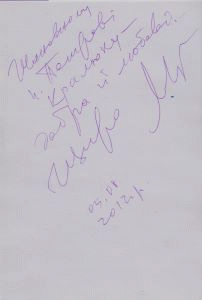 Шановному
п. Петрові
Кралюку –
добра й любові.
Щиро
05.VII
2012 р.